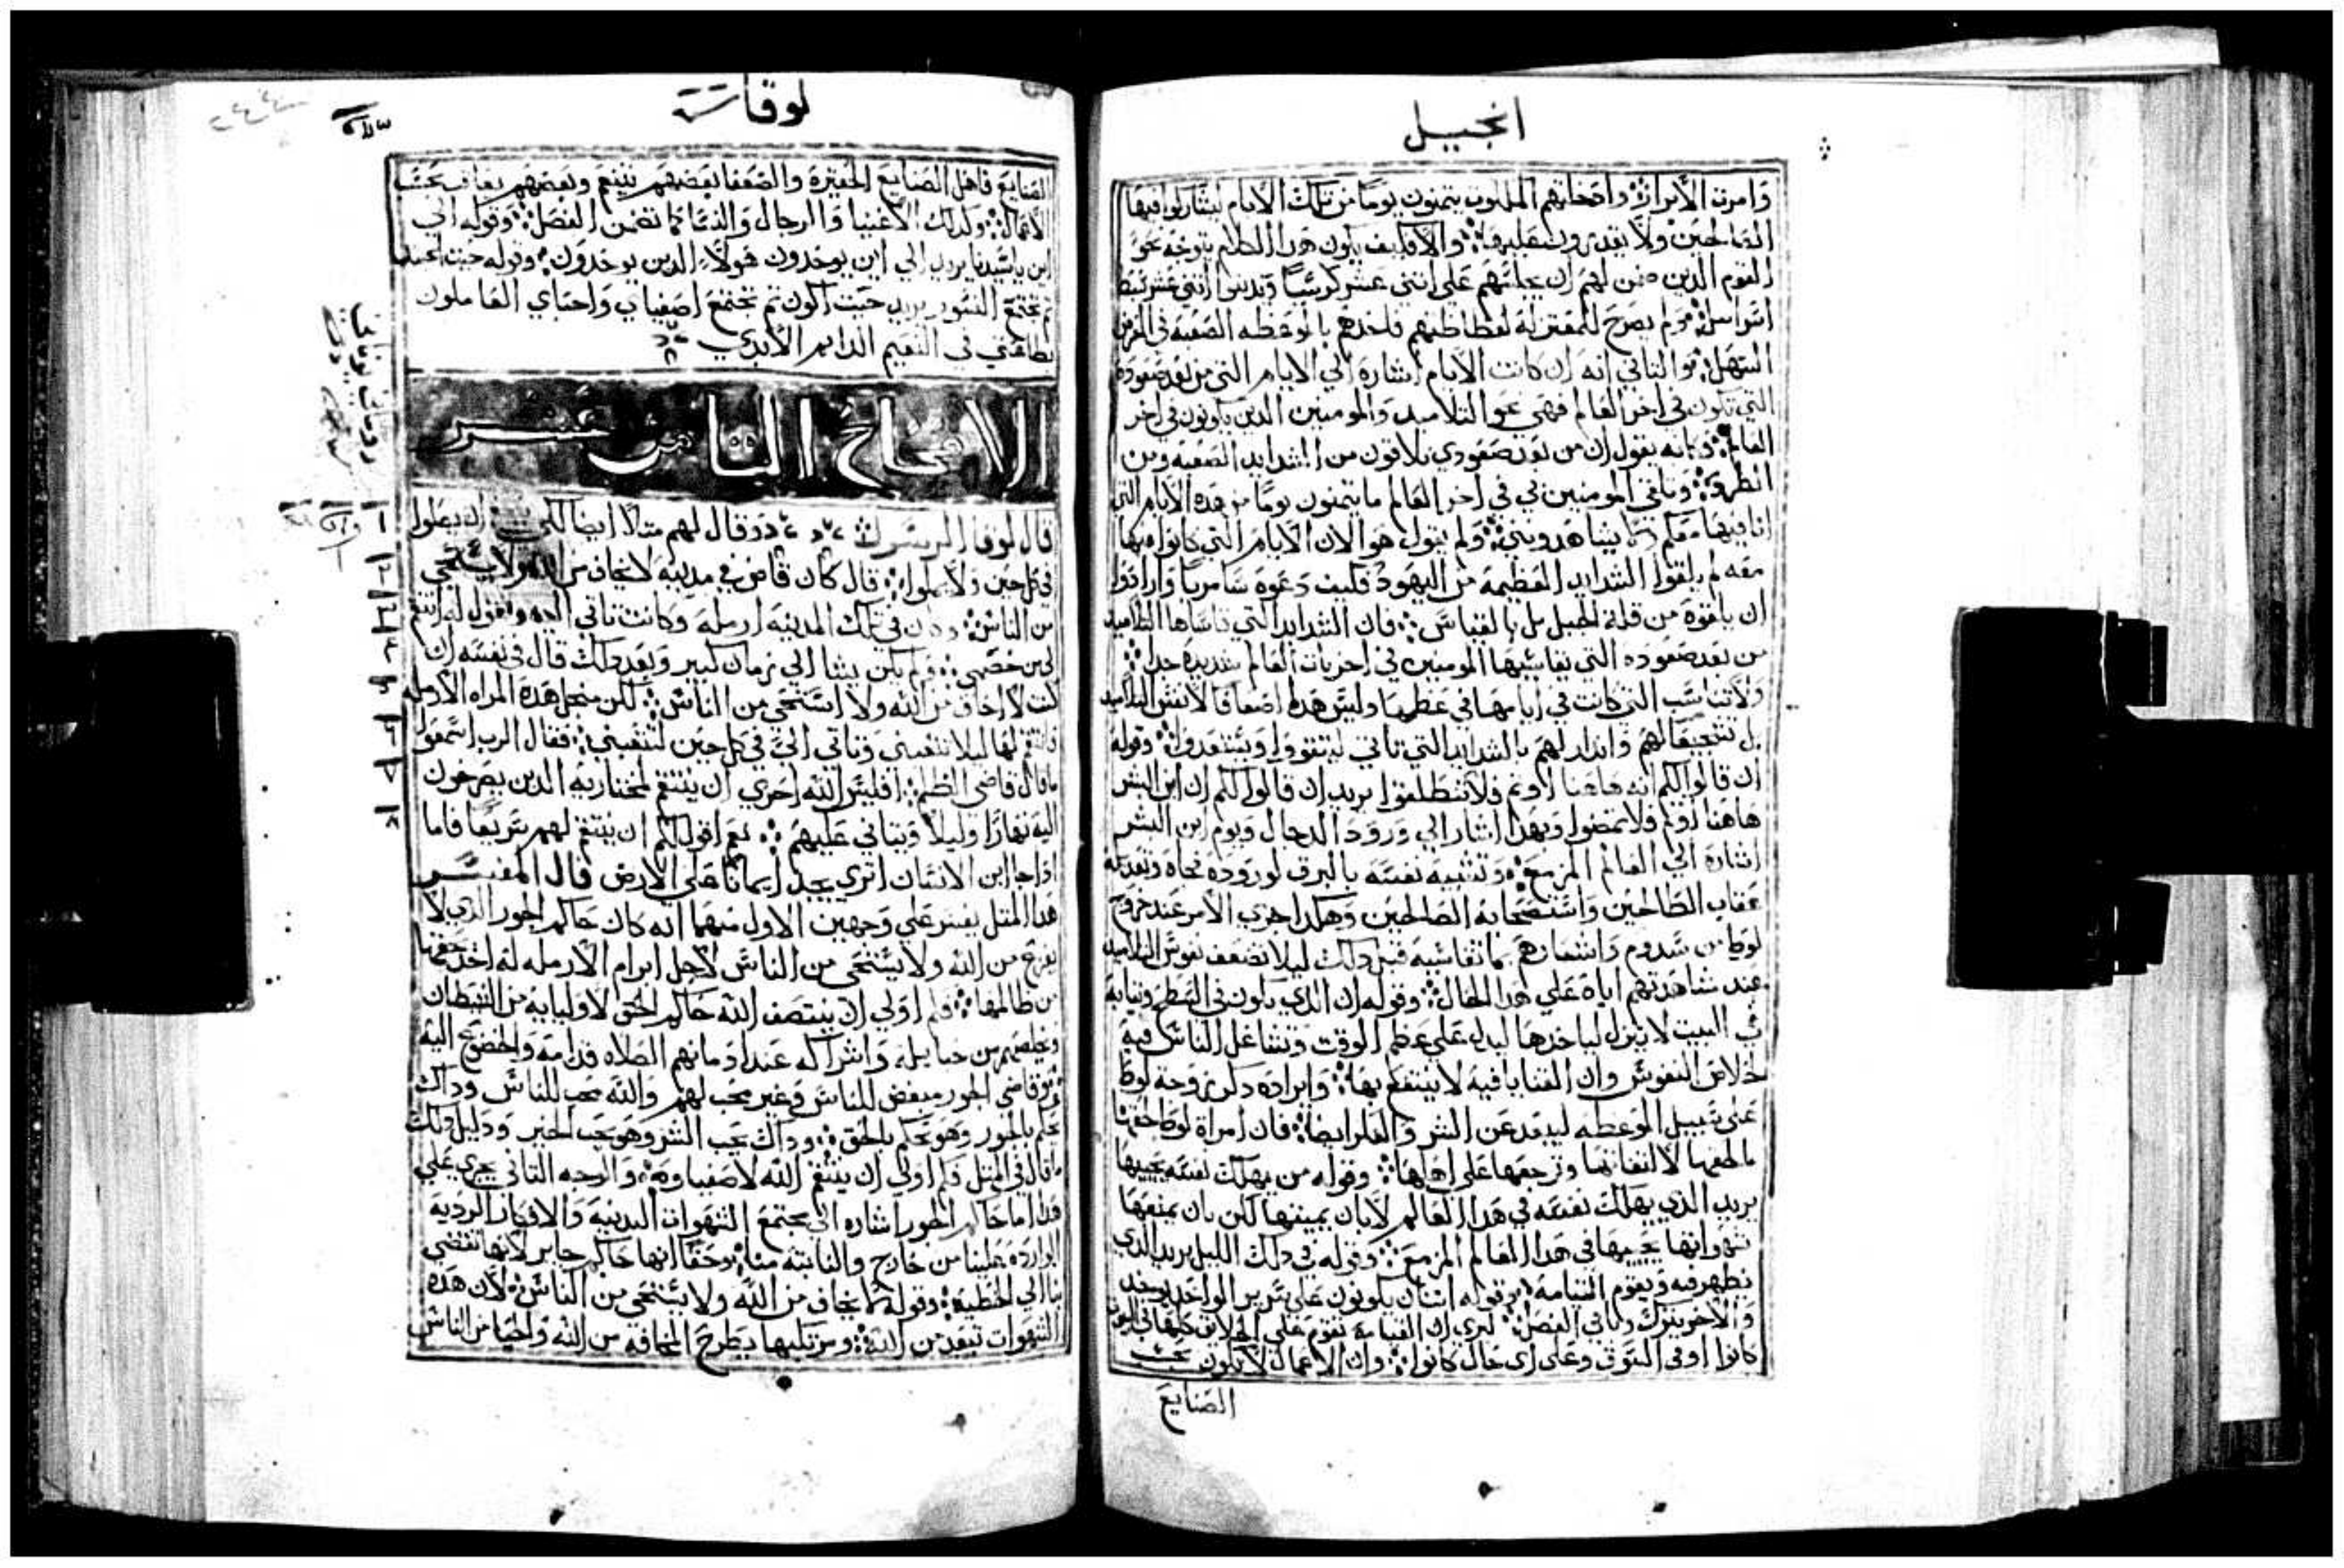 انجيل
وامرت الأبرار واصحابهم الملهون يتمنون يومًا من تلك الايام ليشاركوا فيها
الصالحين ولا يقدرون عليها والا فكيف يكون هدا الكلام يتوجه نحو
القوم الدين ضمن لهم ان يجلسهم على اتنى عشر كرسيًا ويدينوا اتنى عشر سبط
اسراييل
السهل والتاني انه ان كانت الايام اشاره الي الايام التي من بعد صعوده
التي تكون في اخر العالم فهي نحو التلاميد والمومنين الدين يكونون في اخر
العالم وكانه يقول ان من بعد صعودي تلاقون من الشدايد الصعبه ومن
وباقي المومنين بي في اخر العالم ما يتمنون يومًا من هده الايام التي
انا فيها معكم ولم يقول هو الان الايام التي كانوا فيها
معه لم يلقوا الشدايد العظيمه من اليهود فكيف دعوه سامريًا وارادوا
ان يلقوه من قلة الجبل بل بالقياس فان الشدايد التي قاساها التلاميد
من بعد صعوده التي يقاسيها المومنين في اخريات العالم شديدة جدا
ولا تناسب التي كانت في ايامها في عظمها وليس هدا اضعافا لانفس التلاميد
بل تشجيعًا لهم واندار لهم بالشدايد التي تاتي ليتقووا ويستعدوا وقوله
ان قالوا لكم انه هاهنا او تم فلا تنطلقوا يريد ان قالوا لكم ان ابن البشر
هاهنا او تم فلا تمضوا وبهدا اشار الي ورود الدجال ويوم ابن البشر
اشاره الي العالم المزمع وتشبيه نفسه بالبرق لوروده فجاه وبعد له
عقاب الطالحين واستصحابه الصالحين وهكدا اجري الأمر عند خروج
لوط من سدوم واشعارهم بما تقاسيه قبل دلك ليلا تضعف نفوس التلاميد
عند مشاهدتهم اياه على هدا الحال وقوله ان الدي يكون في السطح وتيابه
في البيت لا ينزل لياخدها ليدل على عظم الوقت وتشاغل الناس فيه
لخلاص النفوس وان القنايا فيه لا ينتفع بها وايراده دكر زوجة لوط
على سبيل الموعظه ليبعد عن الشر والفكر ايضا فان امراة لوط لحقها
ما لحقها لالتفاتها وترجعها على اهلها وقوله من يهلك نفسه يحييها
يريد الدي يهلك نفسه في هدا العالم لا بان يميتها لكن بان يمنعها
شهواتها يحييها في هدا العالم المزمع وقوله في دلك الليل يريد الدي
تظهر فيه ويقوم القيامه وقوله اتنان يكونون على سرير الواحد يوخد
والاخر يترك وباقي الفصل ليري ان القيامه تقوم على الخلايق كلها في
كانوا او في السوق وعلى اي حال كانوا وان الاعمال لا تكون بحسب
الصنايع
لوقا
الصنايع فاهل الصنايع الحقيره والضعفا بعضهم ينيع وبعضهم يعاقب بحسب
الاعمال وكدلك الاغنيا والرجال والنسا كما تضمن الفصل وقوله الي
اين ياسيدنا يريد الي اين يوخدون هولاء الدين يوخدون وقوله حيث الجسد
تم تجتمع النسور يريد حيث اكون تم تجتمع اصفياي واحباي العاملون
بطاعتي في النعيم الدايم الأبدي
الاصحاح التامن عشر
قال لوقا وقال لهم متلًا ايضا لكي ان يصلوا
في كل حين ولا يملوا قال كان قاض في مدينه لا يخاف من الله ولا يستحي
من الناس وكان في تلك المدينه ارمله وكانت تاتي اليه وتقول له انتقم
لي من خصمي ولم يكن يشا الي زمان كبير وبعد دلك قال في نفسه ان
كنت لا اخاف من الله ولا استحي من الناس لكن من اجل هده المراه الأرمله
فانتقم لها ليلا تتعبني وتاتي الي في كل حين لتتعبني فقال الرب اسمعوا
ما قال قاضي الظلم افليس الله احري ان ينتقم لمختاريه الدين يصرخون
اليه نهارًا وليلًا ويتاني عليهم نعم اقول لكم ان ينتقم لهم سريعًا فاما
ادا جا ابن الانسان اتري يجد ايمانًا على الارض قال المفسر
هدا المتل يفسر علي وجهين الاول منهما انه كان حاكم الجور الدي لا
يفزع من الله ولا يستحي من الناس لاجل ابرام الأرمله له اخد حقها
من ظالمها فكم اولي ان ينتصف الله حاكم الحق لاوليايه من الشيطان
ويخلصهم من حبايله واشراكه عند ادمانهم الصلاه قدامه والخضوع اليه
وقاضي الجور مبغض للناس وغير محب لهم والله محب للناس وداك
يحكم بالجور وهو يحكم بالحق وداك يحب الشر وهو يحب الخير ودليل دلك
ما قال في المتل فكم اولي ان ينتقم الله لاصفياوه والوجه التاني يجري علي
هدا اما حاكم الجور اشاره الي مجتمع الشهوات البدنيه والافكار الرديه
الوارده علينا من خارج والنابته منا وحقًا انها حاكم جاير لانها تفضي
بنا الي الخطيه وقوله لا يخاف من الله ولا يستحي من الناس لأن هده
الشهوات تبعد من الله ومرتكبها يطرح المخافه من الله والحيا من الناس